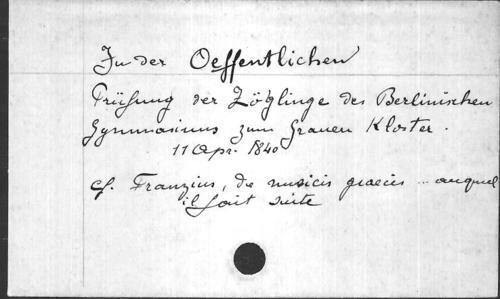 In der Oeffentlichen
Prüfung der Zöglinge des Berlinischen
Gymnasiums zum grauen Kloster.
11 Apr. 1840
cf. Franzius, de musicis graecis ... auquel
il fait suite